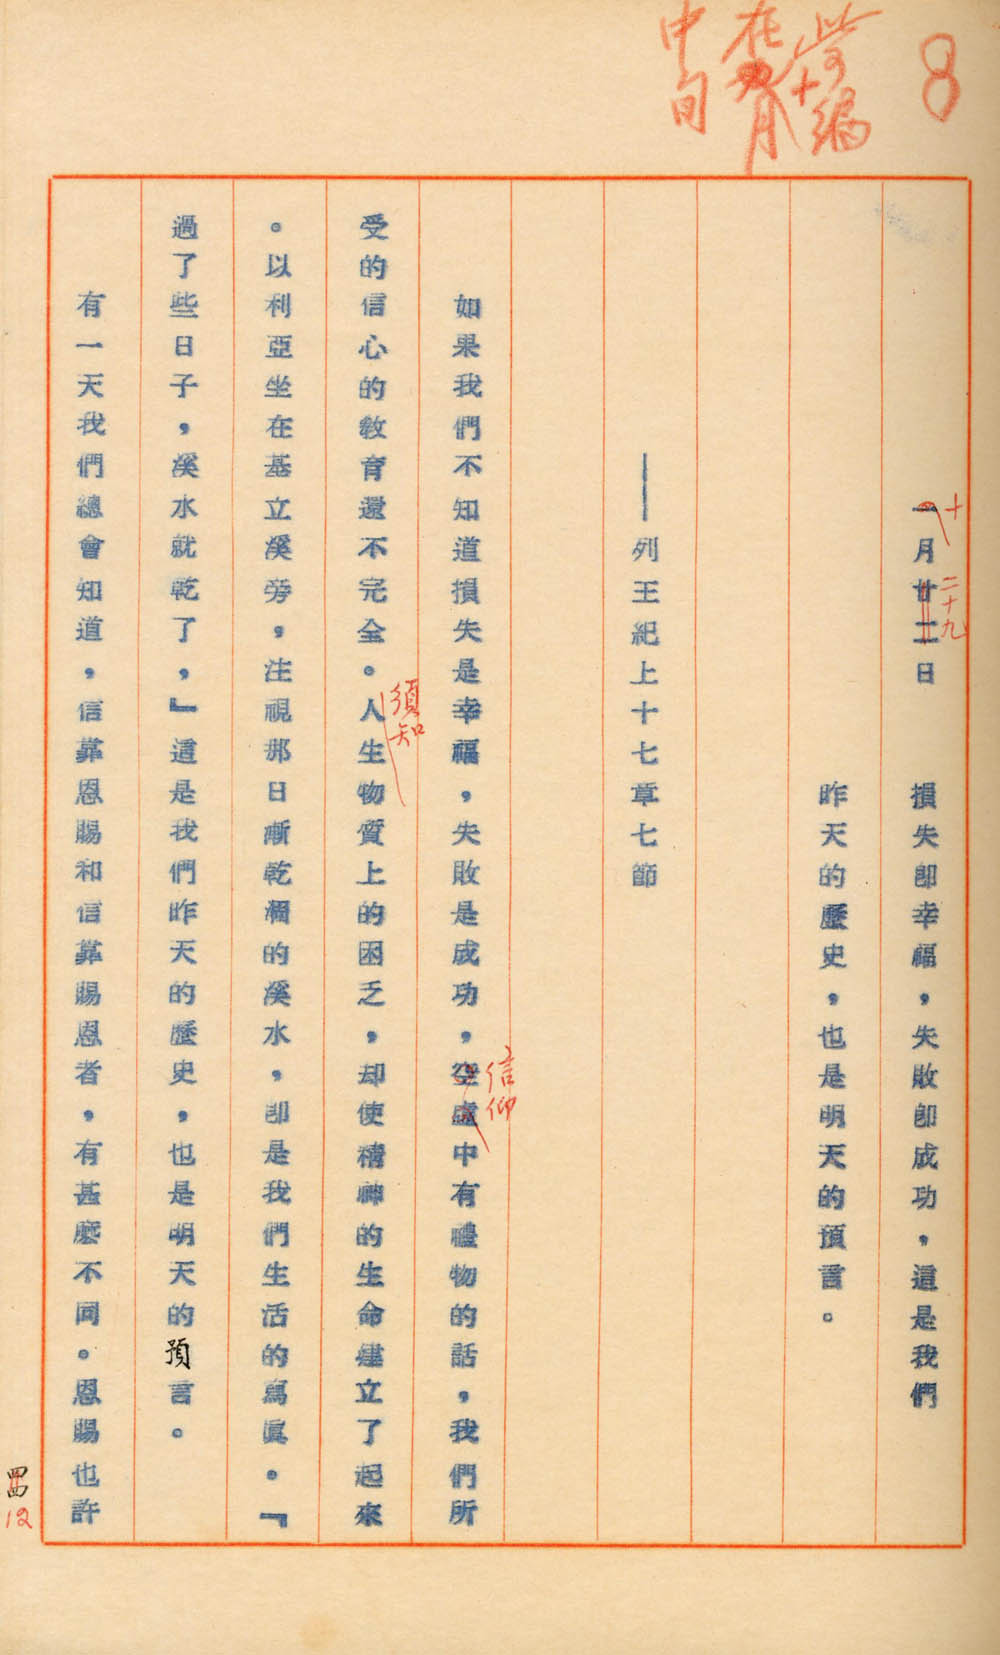 8
中旬
一月廿二日　損失即幸福，失敗即成功，這是我們
十
二十九
昨天的歷史，也是明天的預言。
——列王紀上十七章七節
如果我們不知道損失是幸福，失敗是成功，空處中有禮物的話，我們所
信仰
受的信心的教育還不完全。人生物質上的困乏，却使精神的生命建立了起來
須知
。以利亞坐在基立溪旁，注視那日漸乾涸的溪水，即是我們生活的寫眞。『
過了些日子，溪水就乾了，』這是我們昨天的歷史，也是明天的預言。
有一天我們總會知道，信靠恩賜和信靠賜恩者，有甚麼不同。恩賜也許
12